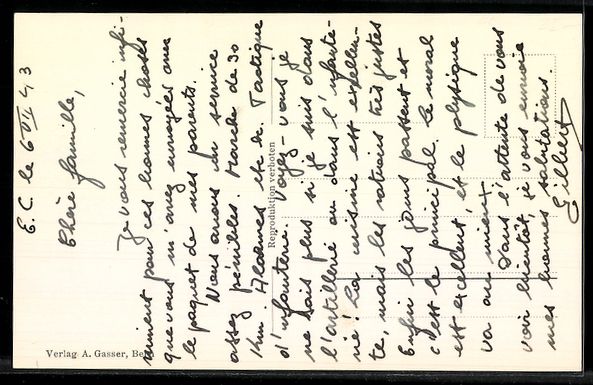 E.C. le 6 VII 43
Chère famille,
Je vous remercie infi-
niment pour ces bonnes choses
que vous m'avez envoyées avec
le paquet de mes parents.
Nous avons un service
assez pénible. Marche de 30
km. Alarmes etc etc. Tactique
d'infanterie. Voyez-vous je
ne sais plus si je suis dans
l'artillerie ou dans l'infante-
rie! La cuisine est excellen-
te, mais les rations très justes
Enfin les jours passent et
c'est le principal. Le moral
est excellent, et le physique
va au mieux
Dans l'attente de vous
voir bientôt je vous envoie
mes bonnes salutations.
Gilbert
Reproduktion verboten
Verlag A. Gasser, Be